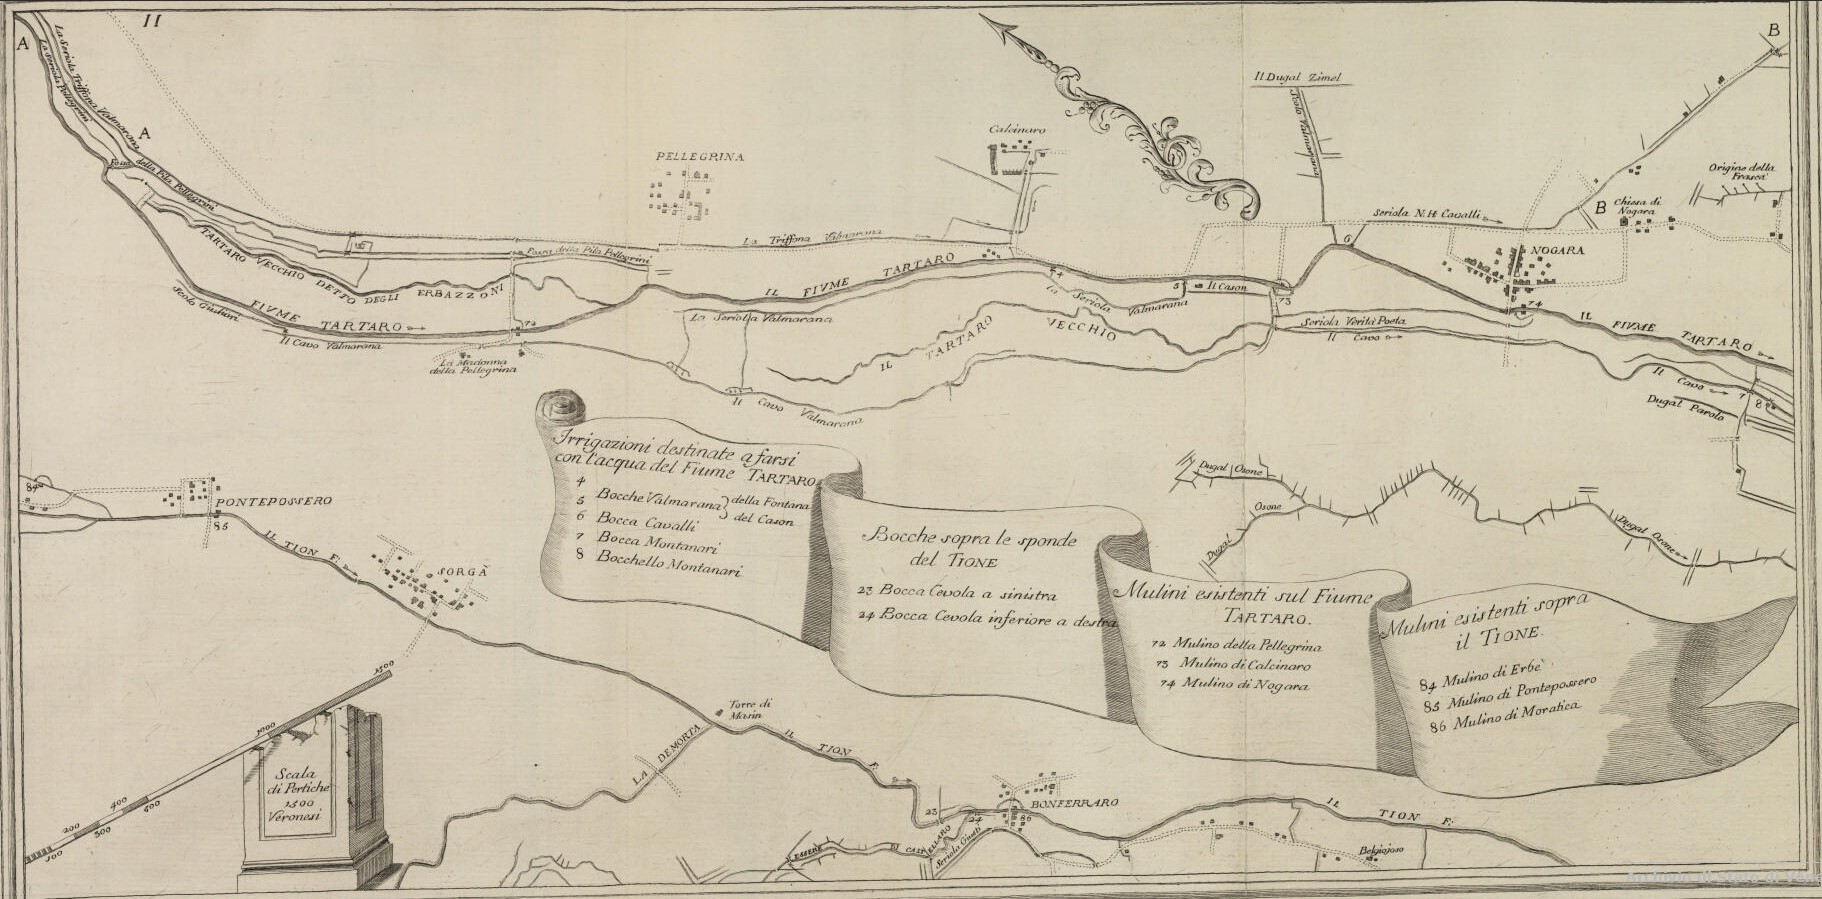 II
A
B
La Seriola Triffona Valmarana
La Seriola Pellegrini
A
Fossa della Pila Pellegrini
PELLEGRINA
Calcinaro
Il Dugal Zimel
Scolo Valmarana
Origine della
Frascà
Seriola N. H. Cavalli
B
Chiesa di
Nogara
NOGARA
TARTARO VECCHIO DETTO DEGLI ERBAZZONI
Fossa della Pila Pellegrini
La Triffona Valmarana
6
IL FIUME TARTARO
4
5
Il Cason
73
74
Scolo Giuliari
FIUME TARTARO
72
Il Cavo Valmarana
La Madonna
della Pellegrina
La Seriola Valmarana
La Seriola Valmarana
IL TARTARO VECCHIO
Seriola Verità Poeta
Il Cavo
IL FIUME TARTARO
Il Cavo
7
8
Dugal Parolo
Il Cavo Valmarana
84
PONTEPOSSERO
85
IL TION F.
SORGÀ
Dugal Osone
Osone
Dugal
Dugal Osone
Irrigazioni destinate a farsi
con l'acqua del Fiume TARTARO
4
5 Bocche Valmarana della Fontana
del Cason
6 Bocca Cavalli
7 Bocca Montanari
8 Bocchello Montanari
Bocche sopra le sponde
del TIONE
23 Bocca Cevola a sinistra
24 Bocca Cevola inferiore a destra
Mulini esistenti sul Fiume
TARTARO.
72 Mulino della Pellegrina
73 Mulino di Calcinaro
74 Mulino di Nogara
Mulini esistenti sopra
il TIONE.
84 Mulino di Erbè
85 Mulino di Pontepossero
86 Mulino di Moratica
1500
1000
400
500
200
300
100
Scala
di Pertiche
1500
Veronesi
Torre di
Masin
LA DEMORTA
IL TION F.
23
24
BONFERRARO
86
ESSERE DI CASTELLARO
Seriola Giusti
IL TION F.
Belgiojoso
Archivio di Stato di